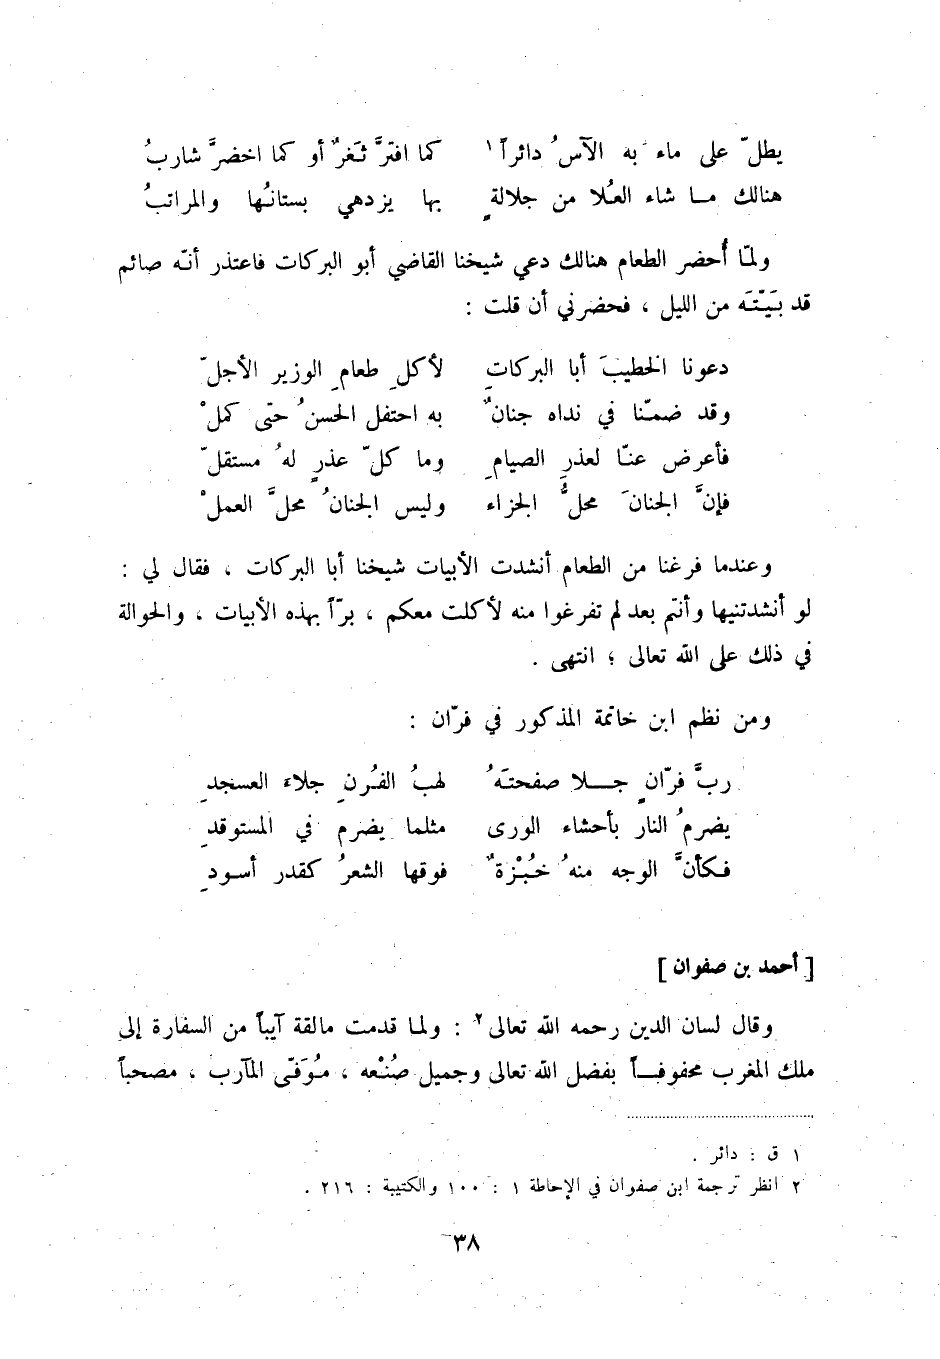 يطلّ على ماء به الآسُ دائراً ١ كما افترَّ ثَغرٌ أو كما اخضرَّ شاربُ
هنالك مـا شاء العُلا من جلالةٍ بها يزدهي بستانُها والمراتبُ
ولمّا أُحضر الطعام هنالك دعي شيخنا القاضي أبو البركات فاعتذر أنّه صائم
قد بَيّتَه من الليل ، فحضرني أن قلت :
دعونا الخطيبَ أبا البركاتِ لأكلِ طعامِ الوزير الأجلّ
وقد ضمّنا في نداه جنانٌ به احتفل الحسنُ حتّى كملْ
فأعرض عنّا لعذرِ الصيامِ وما كلّ عذرٍ لهُ مستقلّ
فإنَّ الجنانَ محلُّ الجزاء وليس الجنانُ محلَّ العملْ
وعندما فرغنا من الطعام أنشدت الأبيات شيخنا أبا البركات ، فقال لي :
لو أنشدتنيها وأنتم بعد لم تفرغوا منه لأكلت معكم ، برّاً بهذه الأبيات ، والحوالة
في ذلك على الله تعالى ؛ انتهى .
ومن نظم ابن خاتمة المذكور في فرّان :
ربَّ فرّانٍ جـلا صفحتَهُ لهبُ الفُرنِ جلاءَ العسجدِ
يضرمُ النار بأحشاء الورى مثلما يضرم في المستوقدِ
فكأنَّ الوجه منهُ خُبْزةٌ فوقها الشعرُ كقدر أسودِ
[ أحمد بن صفوان ]
وقال لسان الدين رحمه الله تعالى ٢ : ولما قدمت مالقة آيباً من السفارة إلى
ملك المغرب محفوفـاً بفضل الله تعالى وجميل صُنْعه ، مُوَفّى المآرب ، مصحباً
١ ق : دائر .
٢ انظر ترجمة ابن صفوان في الإحاطة ١ : ١٠٠ والكتيبة : ٢١٦ .
٣٨